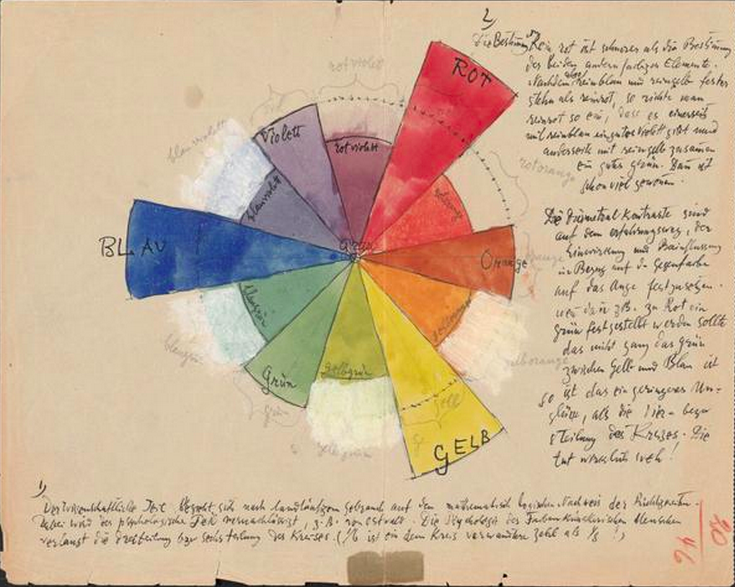 2)
Die Bestimmung
Rein rot ist schwerer als die Bestimmung
der beiden andern farbigen Elemente.
Nachdem aber reinblau und reingelb fester
stehn als reinrot, so richte man
reinrot so ein, dass es einerseits
mit reinblau ein gutes Violett gibt und
anderseits mit reingelb zusammen
ein gutes grün. Dann ist
schon viel gewonnen.
Die Diametral Kontraste sind
auf dem erfahrungsweg, der
Einwirkung und Beeinflussung
in Bezug auf die Gegenfarbe
auf das Auge festzusetzen.
wenn dann z.B. zu Rot ein
grün festgestellt werden sollte
das nicht ganz das grün
zwischen Gelb und Blau ist
so ist das ein geringeres Un-
glück, als die
teilung des Kreises. Die
tut wirklich weh!
rotviolett
ROT
Violett
rotviolett
blauviolett
blauviolett
rotorange
rotorange
BLAU
Grau
Orange
orange
blaugrün
blaugrün
gelborange
gelborange
Grün
grün
gelbgrün
gelbgrün
gelb
GELB
1)
Der wissenschaftliche Teil bezieht sich nach landläufigem gebrauch auf den mathematisch logischen Nachweis der Richtigkeiten.
Dabei wird der psychologische Teil vernachlässigt, z.B. von Ostwald. Die Psychologie des Farbenkünstlerischen Menschen
verlangt die dreiteilung bzw sechsteilung des Kreises. ( ist ein dem Kreis verwandtere Zahl als !)